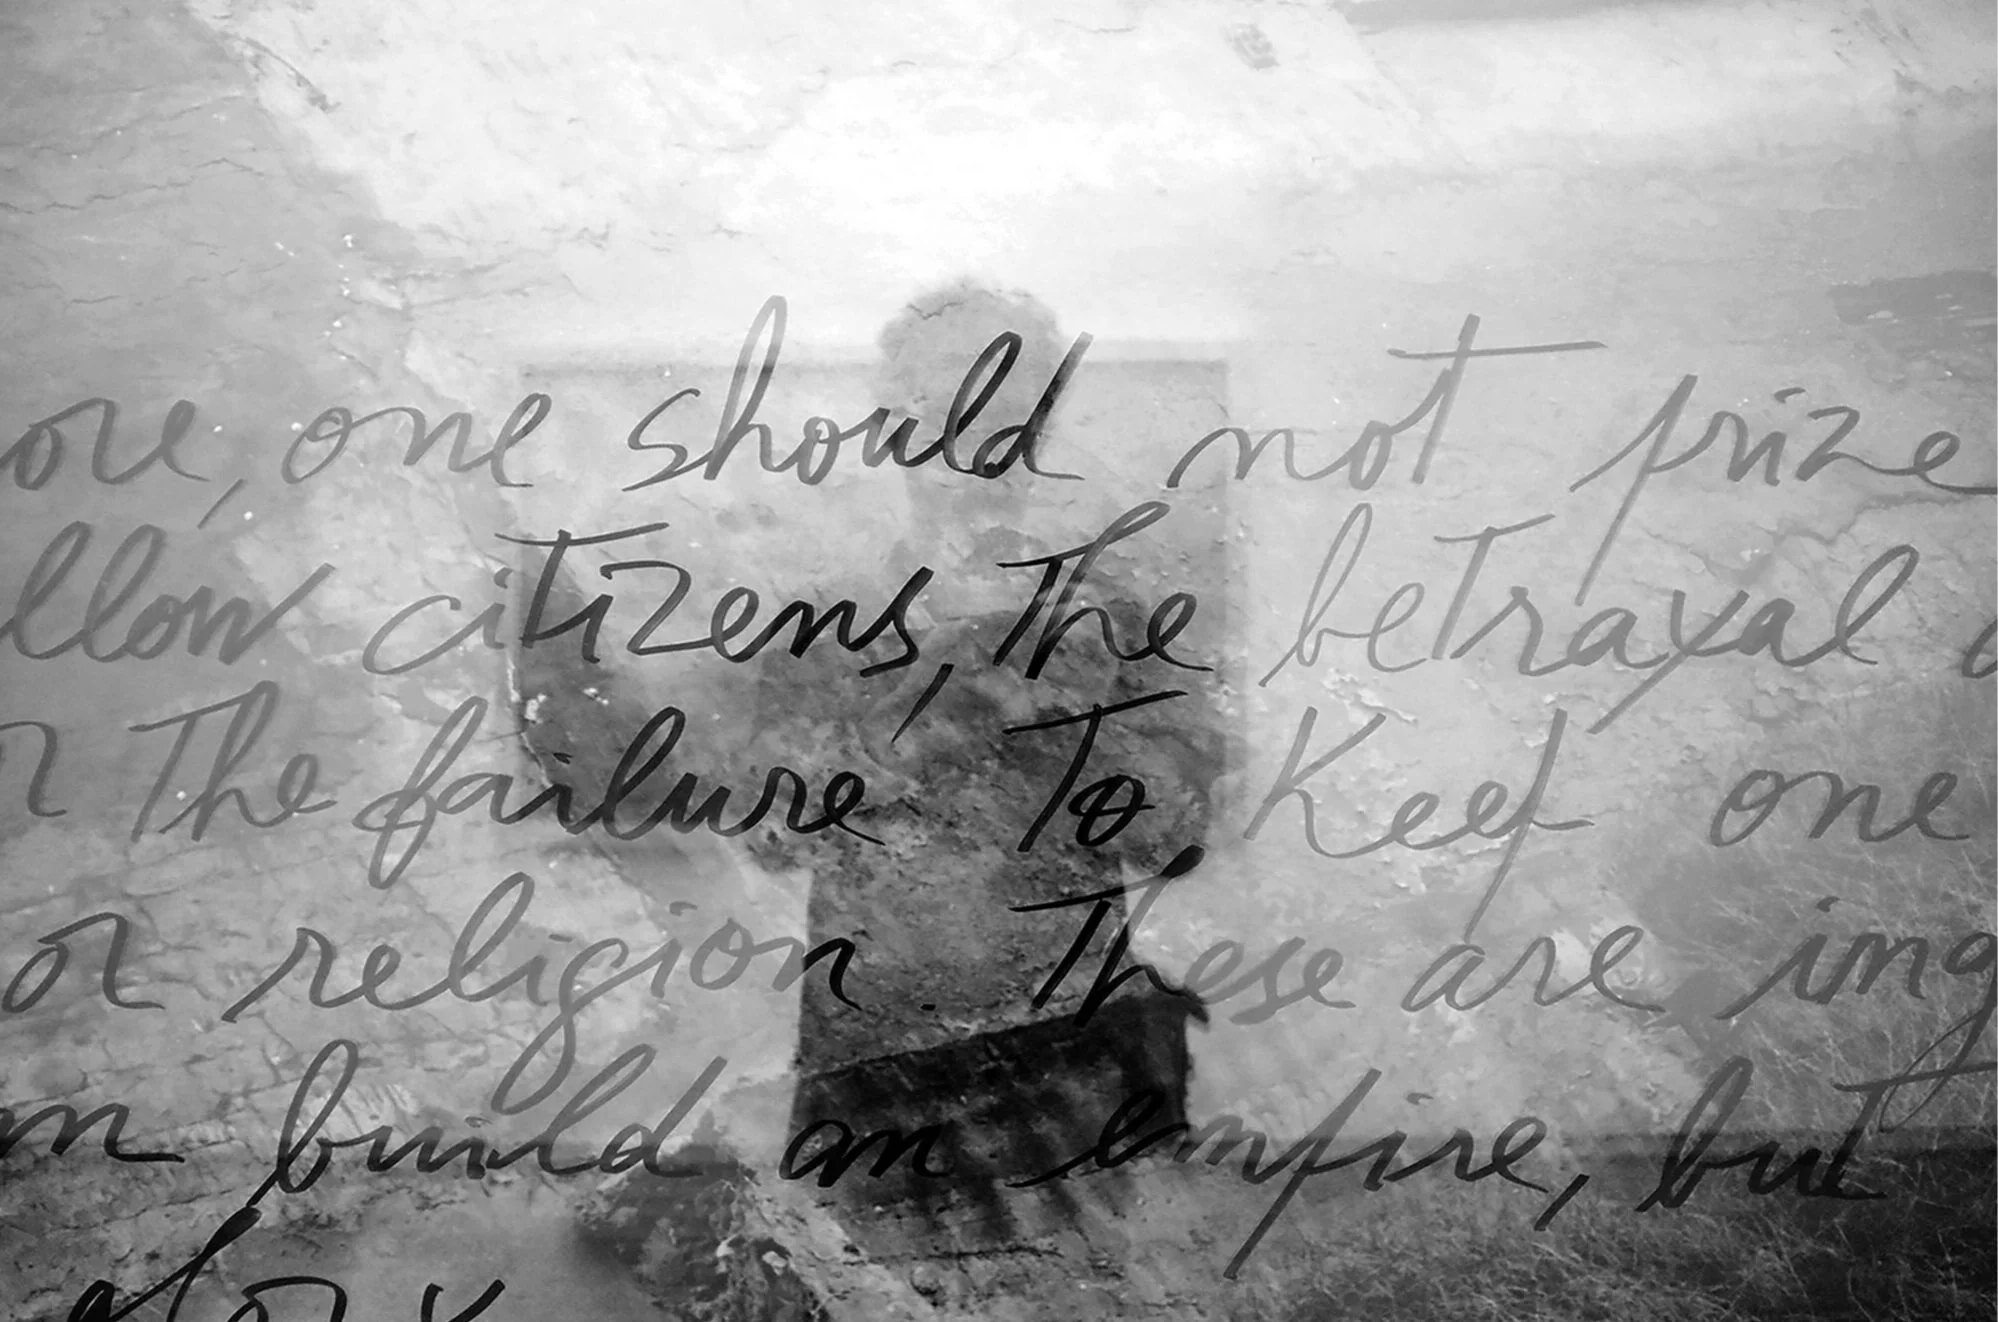 ore, one should not prize
llow citizens, The betrayal o
r The failure To Keep one
or religion. These are ing
an build an empire, but
glory